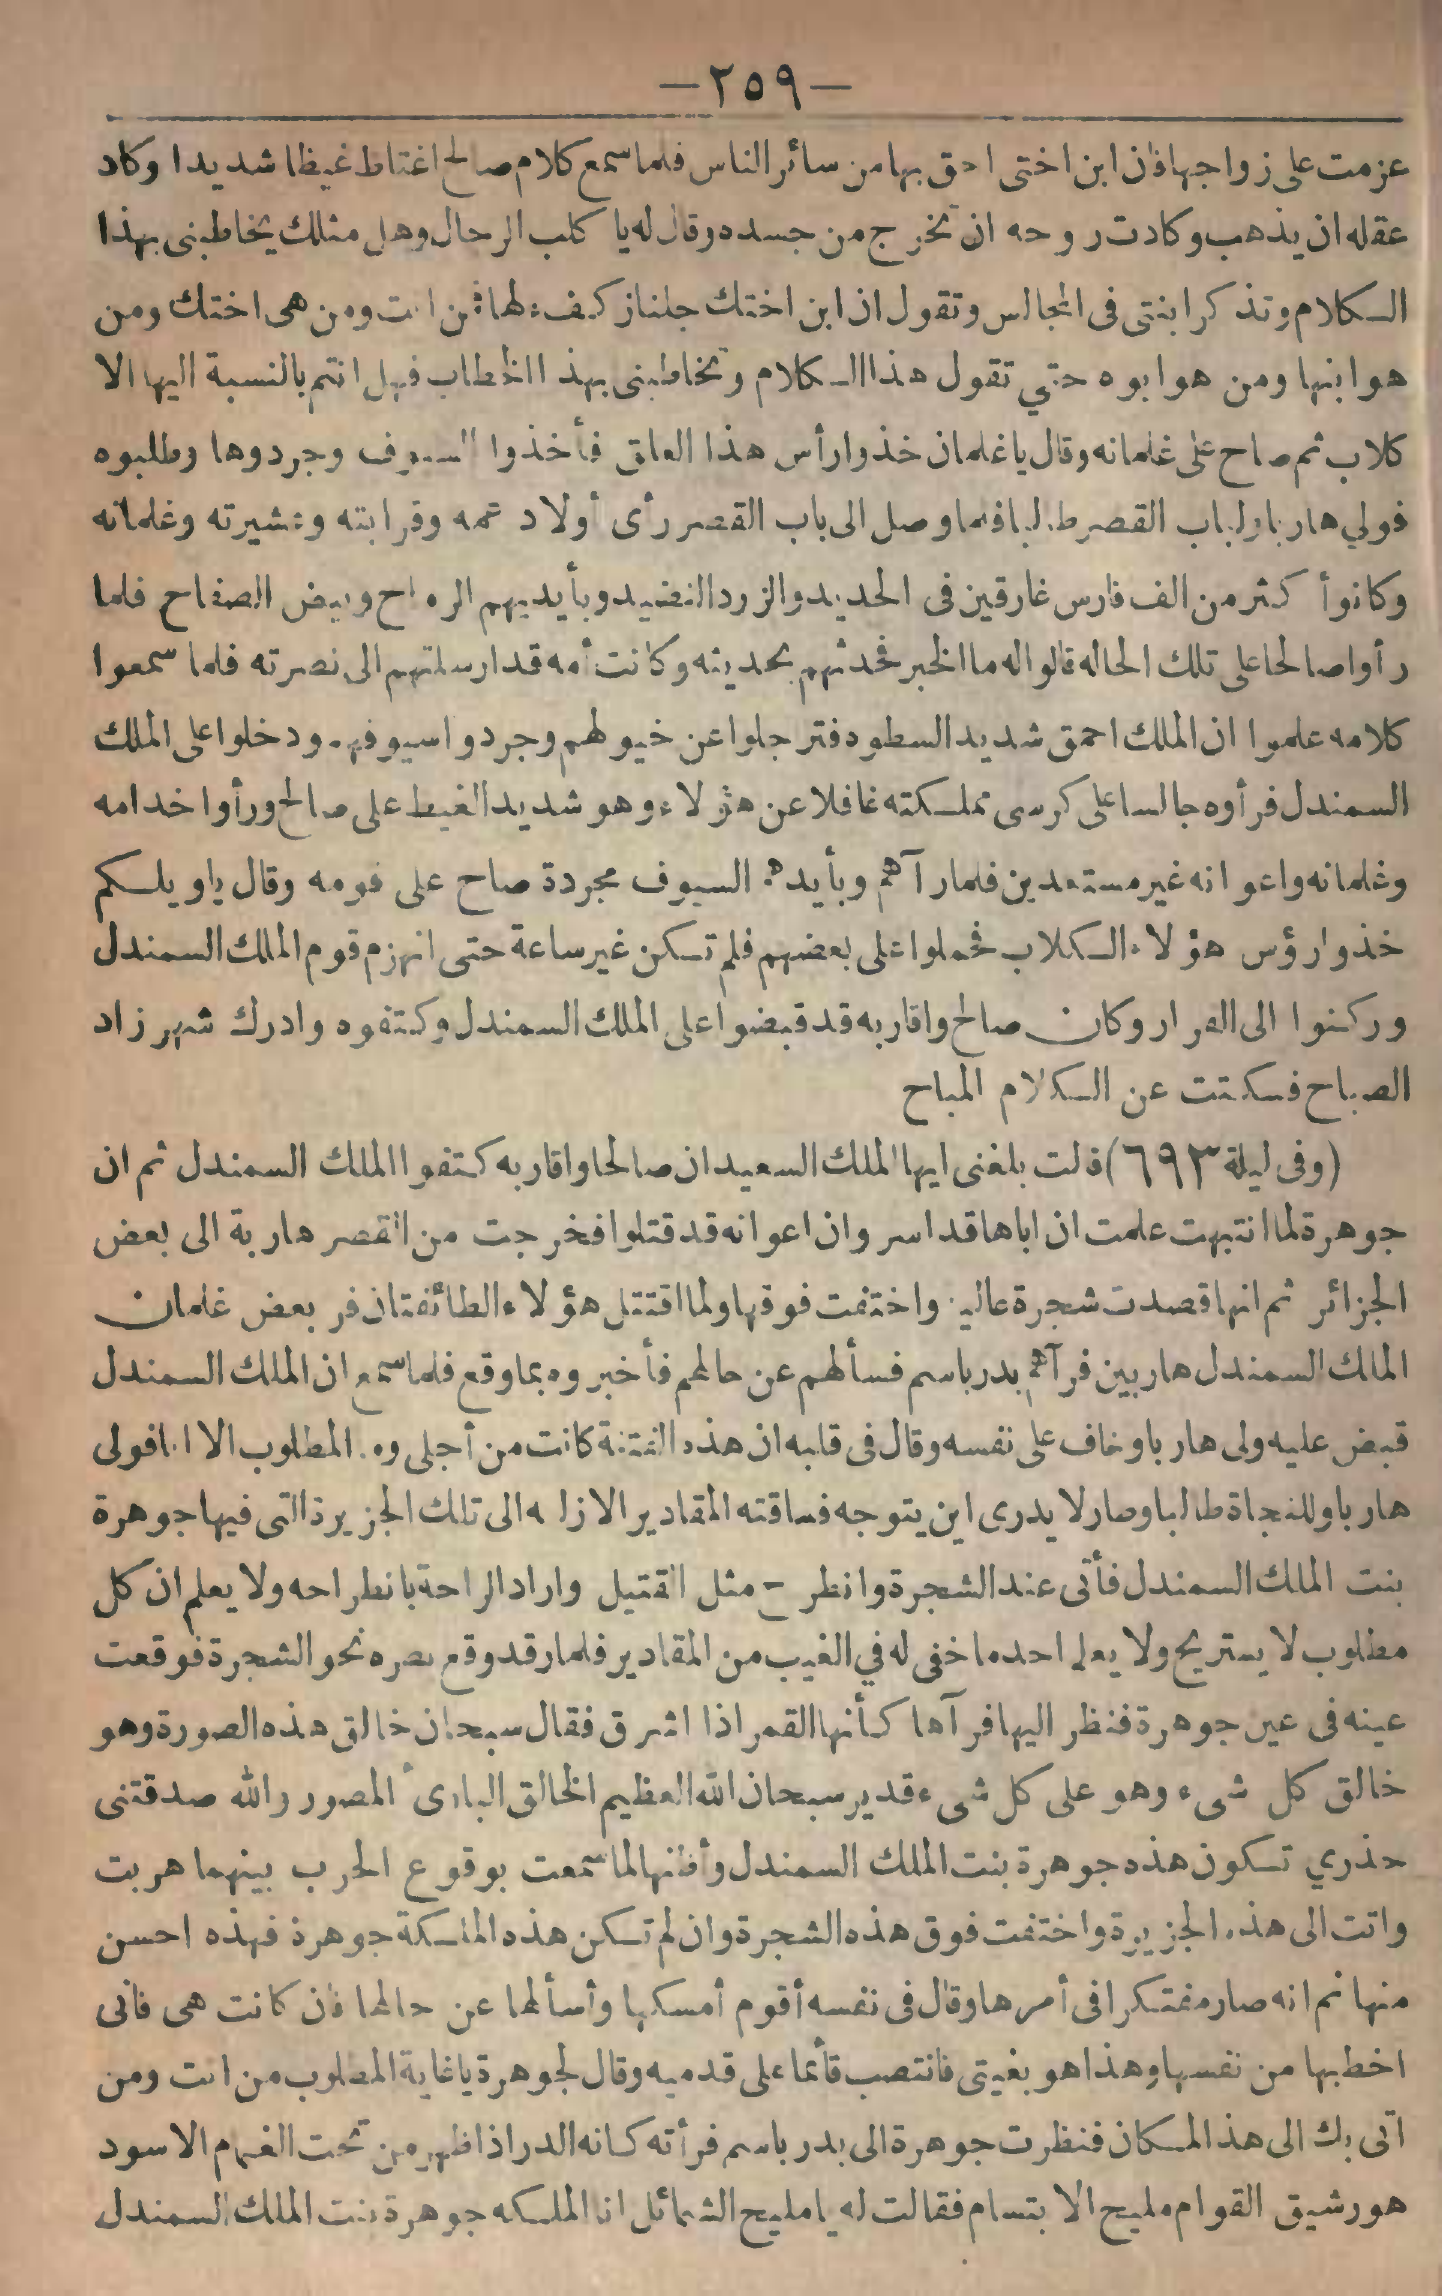 —٢٥٩—
عزمت على زواجها فان ابن اختى احق بها من سائر الناس فلما سمع كلام صالح اغتاظ غيظا شديدا وكاد
عقله ان يذهب وكادت روحه ان تخرج من جسده وقال له يا كلب الرجال وهل مثلك يخاطبنى بهذا
الكلام وتذكر ابنتى فى المجالس وتقول ان ابن اختك جلناز كفء لها فمن انت ومن هى اختك ومن
هو ابنها ومن هو ابوه حتي تقول هذا الكلام وتخاطبنى بهذا الخطاب فهل انتم بالنسبة اليها الا
كلاب ثم صاح على غلمانه وقال يا غلمان خذوا رأس هذا العلق فأخذوا السيوف وجردوها وطلبوه
فولي هاربا ولباب القصر طالبا فلما وصل الى باب القصر رأى أولاد عمه وقرابته وعشيرته وغلمانه
وكانوا أكثر من الف فارس غارقين فى الحديد والزرد النضيد وبأيديهم الرماح وبيض الصفاح فلما
رأوا صالحا على تلك الحاله قالوا له ما الخبر فحدثهم بحديثه وكانت أمه قد ارسلتهم الى نصرته فلما سمعوا
كلامه علموا ان الملك احمق شديد السطوه فترجلوا عن خيولهم وجردوا سيوفهم ودخلوا على الملك
السمندل فرأوه جالسا على كرسى مملكته غافلا عن هؤلاء وهو شديد الغيظ على صالح ورأوا خدامه
وغلمانه واعوانه غير مستعدين فلما رآهم وبأيدهم السيوف مجردة صاح على قومه وقال ياويلكم
خذوا رؤس هؤلاء الكلاب فحملوا على بعضهم فلم تكن غير ساعة حتى انهزم قوم الملك السمندل
وركنوا الى الفرار وكان صالح واقاربه قد قبضوا على الملك السمندل وكتفوه وادرك شهرزاد
الصباح فسكتت عن الكلام المباح
(وفى ليلة ٦٩٣) قالت بلغنى ايها الملك السعيد ان صالحا واقاربه كتفوا الملك السمندل ثم ان
جوهرة لما انتبهت علمت ان اباها قد اسر وان اعوانه قد قتلوا فخرجت من القصر هاربة الى بعض
الجزائر ثم انها قصدت شجرة عالية واختفت فوقها ولما اقتتل هؤلاء الطائفتان فر بعض غلمان
الملك السمندل هاربين فرآهم بدر باسم فسألهم عن حالهم فأخبروه بما وقع فلما سمع ان الملك السمندل
قبض عليه ولى هاربا وخاف على نفسه وقال فى قلبه ان هذه الفتنة كانت من أجلى وما المطلوب الا انا فولى
هاربا وللنجاة طالبا وصار لا يدرى اين يتوجه فساقته المقادير الازليه الى تلك الجزيرة التى فيها جوهرة
بنت الملك السمندل فأتى عند الشجرة وانطرح مثل القتيل واراد الراحة بانطراحه ولا يعلم ان كل
مطلوب لا يستريح ولا يعلم احد ما خفى له في الغيب من المقادير فلما رقد وقع بصره نحو الشجرة فوقعت
عينه فى عين جوهرة فنظر اليها فرآها كأنها القمر اذا اشرق فقال سبحان خالق هذه الصورة وهو
خالق كل شىء وهو على كل شىء قدير سبحان الله العظيم الخالق البارئ المصور والله صدقتنى
حذري تكون هذه جوهرة بنت الملك السمندل وأظنها لما سمعت بوقوع الحرب بينهما هربت
واتت الى هذه الجزيرة واختفت فوق هذه الشجرة وان لم تكن هذه الملكة جوهرة فهذه احسن
منها ثم انه صار مفتكرا فى أمرها وقال فى نفسه أقوم أمسكها وأسألها عن حالها فان كانت هى فانى
اخطبها من نفسها وهذا هو بغيتى فانتصب قأئما على قدميه وقال لجوهرة يا غاية المطلوب من انت ومن
اتى بك الى هذ المكان فنظرت جوهرة الى بدر باسم فرأته كانه البدر اذا ظهر من تحت الغمام الاسود
هو رشيق القوام مليح الابتسام فقالت له يا مليح الشمائل انا الملكه جوهرة بنت الملك السمندل